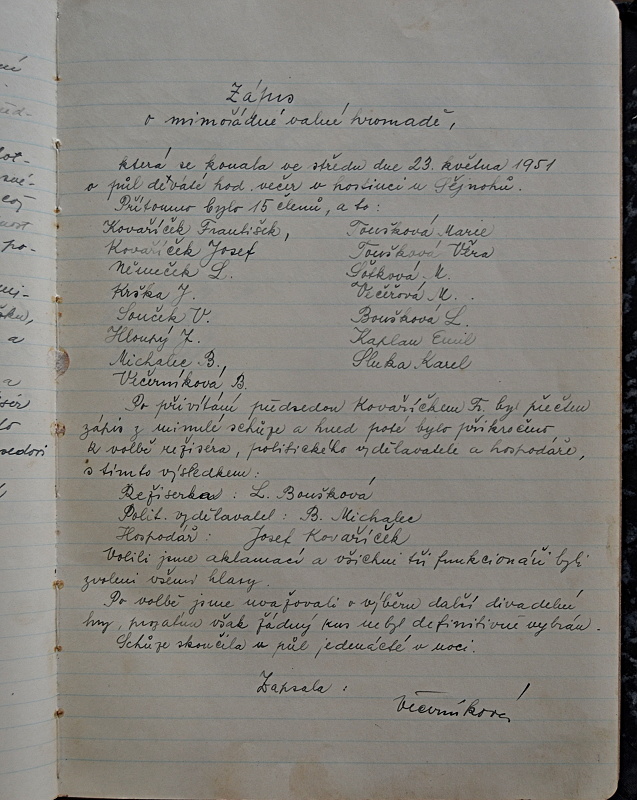 Zápis
o mimořádné valné hromadě,
která se konala ve středu dne 23. května 1951
o půl deváté hod. večer v hostinci u
Přítomno bylo 15 členů, a to:
Kovaříček František, Toušková Marie
Kovaříček Josef Toušková Věra
Němeček L. M.
Krška J. Večeřová M.
Souček V. Boušková L.
Hloupý J. Kaplan Emil
Michalec B., Sluka Karel
Večerníková B.
Po přivítání předsedou Kovaříčkem Fr. byl přečten
zápis z minulé schůze a hned poté bylo přikročeno
k volbě režiséra, politického vzdělavatele a hospodáře,
s tímto výsledkem:
Režiserka: L. Boušková
Polit. vzdělavatel: B. Michalec
Hospodář: Josef Kovaříček
Volili jsme aklamací a všichni tři funkcionáři byli
zvoleni všemi hlasy.
Po volbě jsme uvažovali o výběru další divadelní
hry, prozatím však žádný kus nebyl definitivně vybrán.
Schůze skončila v půl jedenácté v noci.
Zapsala:
Večerníková